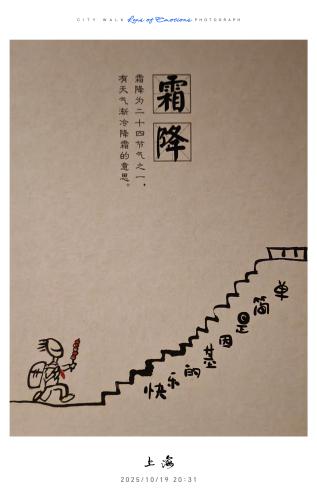 CITY WALK Lens of Emotions PHOTOGRAPH
霜降
霜降为二十四节气之一，
有天气渐冷降霜的意思。
快乐的基因是简单
上海
2025/10/19 20:31